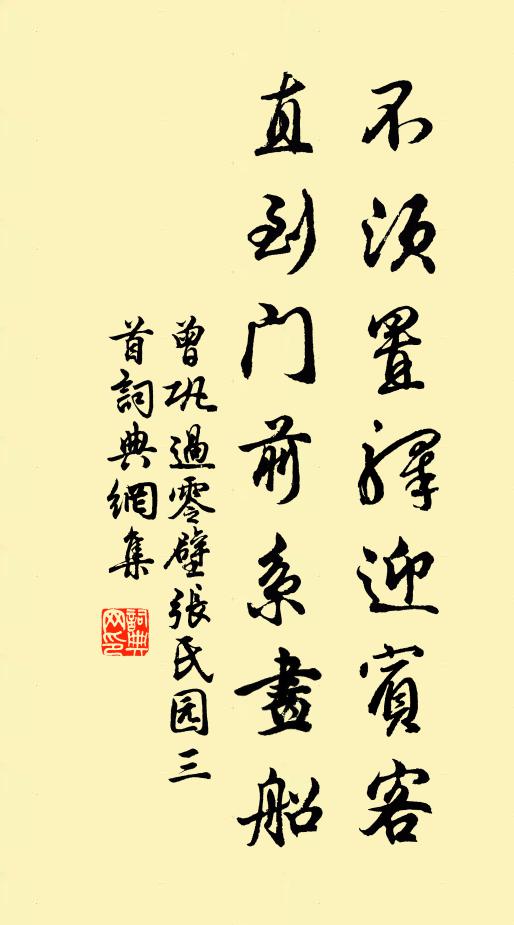 不須置驛迎賓客
直到門前系畫船
曾巩過零壁張氏园三
首詞典網集
詞典網印